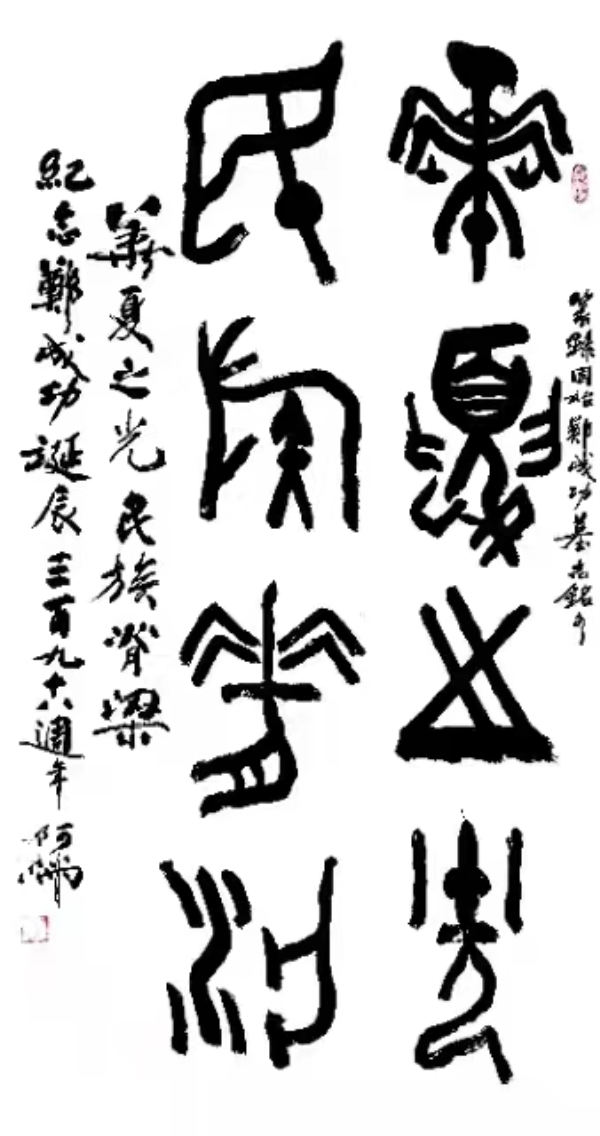 篆錄固始鄭成功墓志銘句
華夏之光
民族脊梁
華夏之光民族脊梁
紀念鄭成功誕辰三百九十八週年 阿